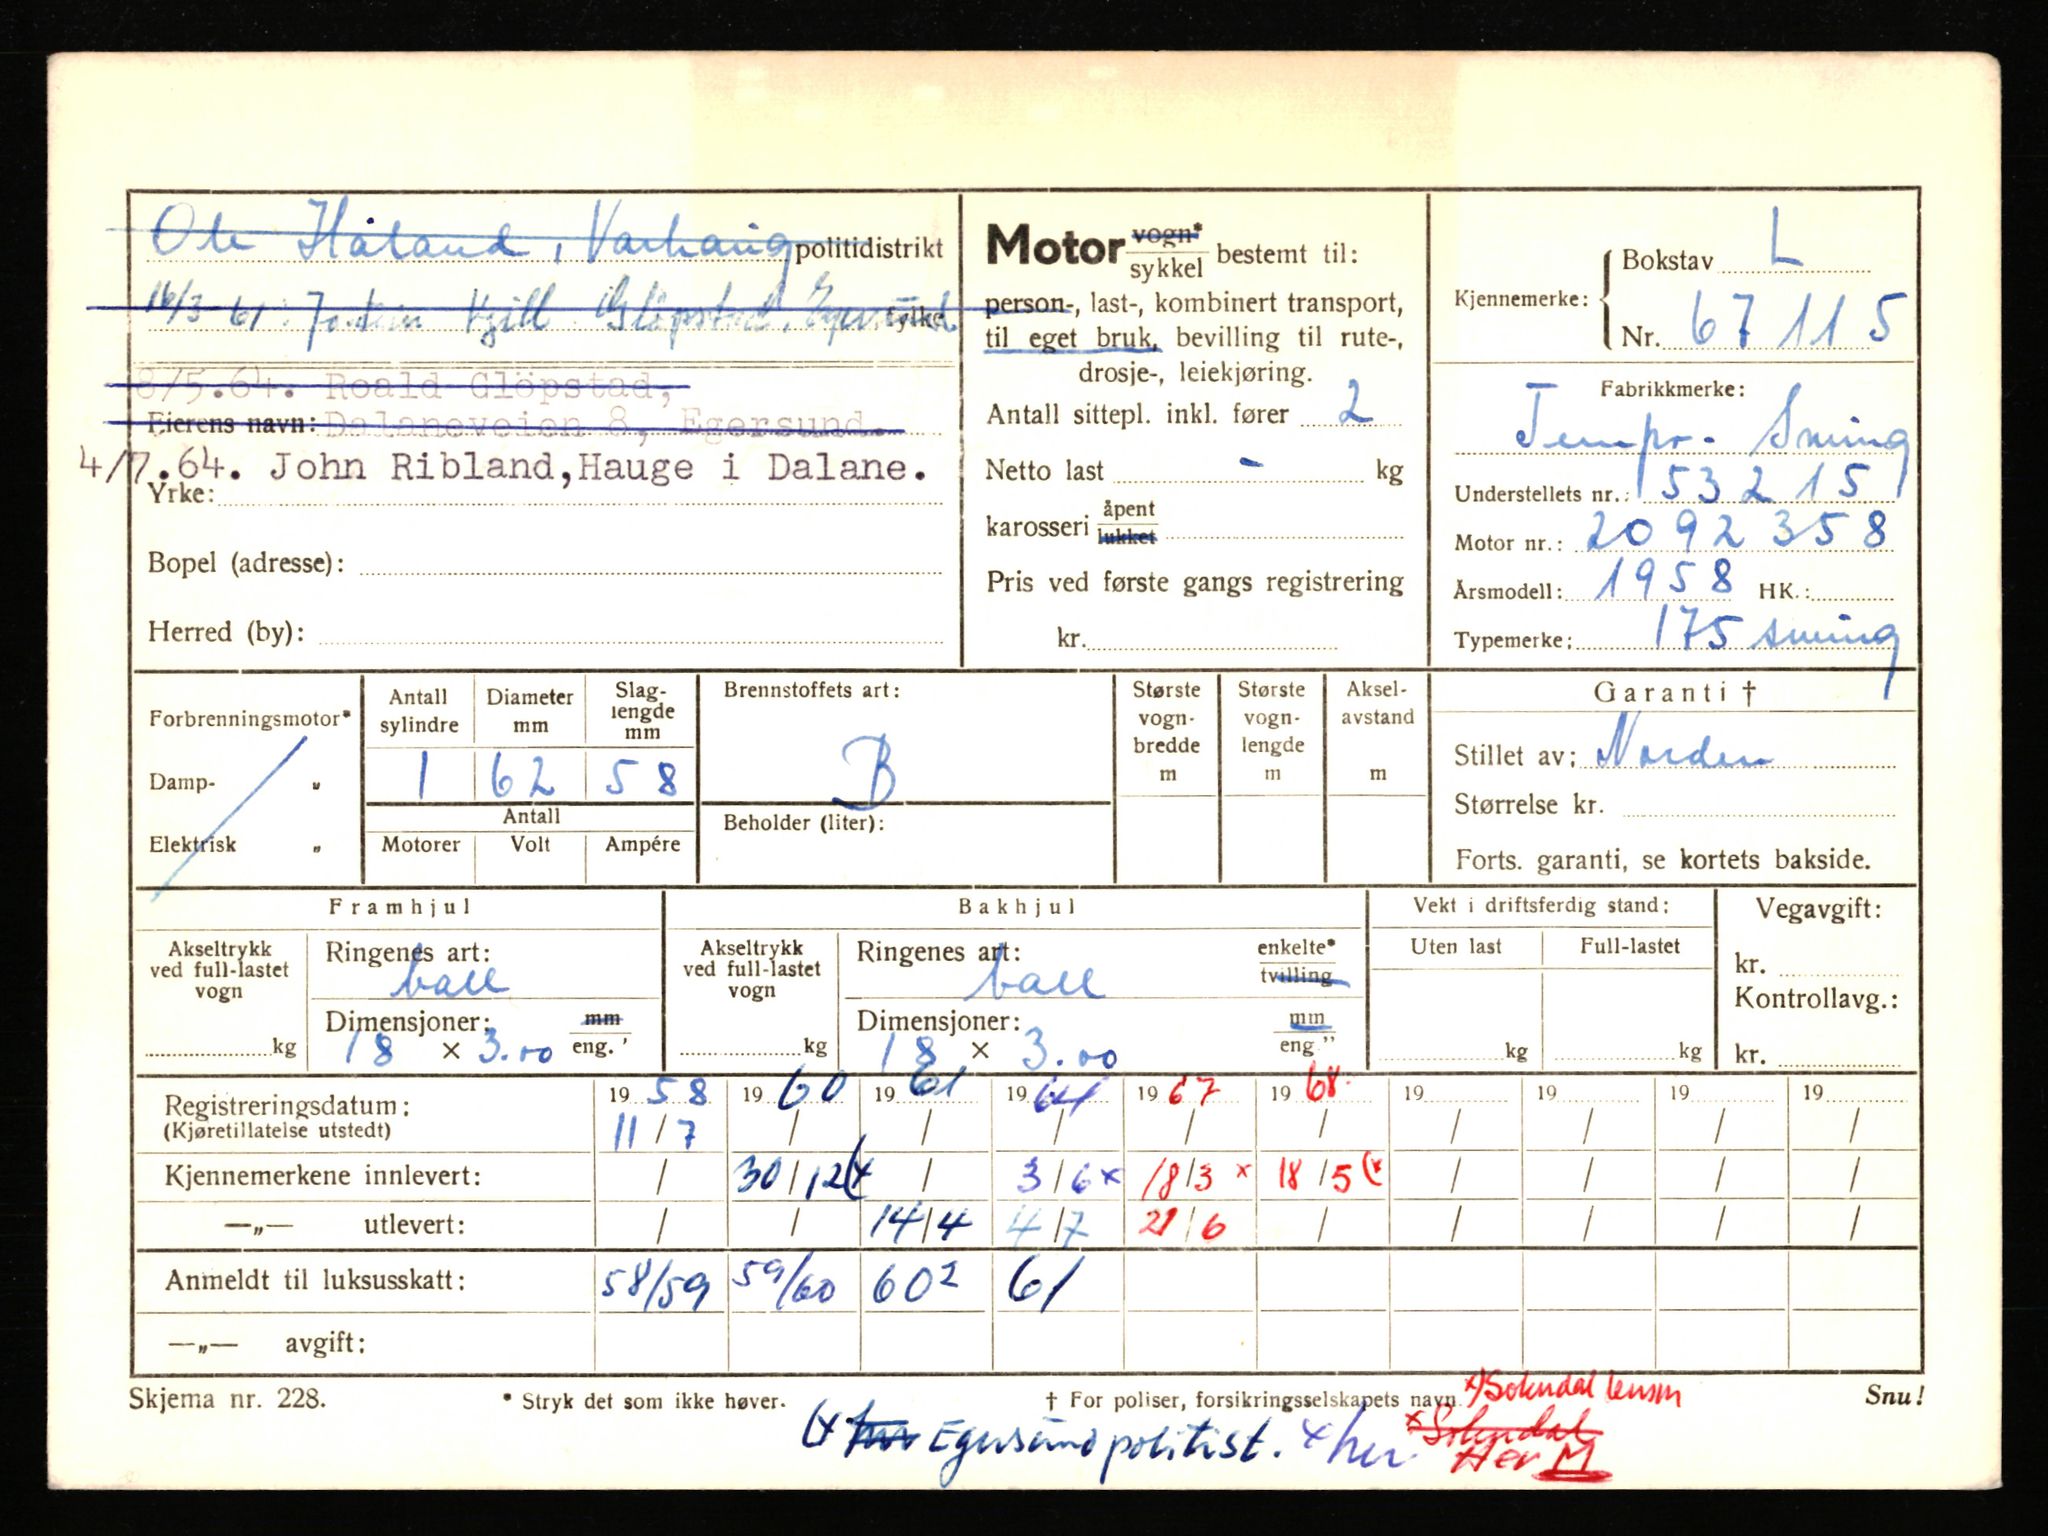 Ole Håland, Varhaug politidistrikt
16/3 61: Jostein Kjell Glöpstad, Egersund fylke
8/5.64. Roald Glöpstad,
Eierens navn: Dalaneveien 8, Egersund.
4/7.64. John Ribland, Hauge i Dalane.
Yrke:
Bopel (adresse):
Herred (by):
Motor vogn* sykkel bestemt til:
person-, last-, kombinert transport,
til eget bruk, bevilling til rute-,
drosje-, leiekjøring.
Antall sittepl. inkl. fører 2
Netto last - kg
karosseri åpent lukket
Pris ved første gangs registrering
kr.
Kjennemerke: Bokstav L
Nr. 67115
Fabrikkmerke:
Tempo - Swing
Understellets nr.: 153215
Motor nr.: 2092358
Årsmodell: 1958 HK.:
Typemerke: 175 swing
Forbrenningsmotor*
Damp- „
Elektrisk „
Antall sylindre Diameter mm Slag-lengde mm
1 62 58
Antall
Motorer Volt Ampére
Brennstoffets art:
B
Beholder (liter):
Største vogn-bredde m
Største vogn-lengde m
Aksel-avstand m
Garanti †
Stillet av: Norden
Størrelse kr.
Forts. garanti, se kortets bakside.
Framhjul
Akseltrykk ved full-lastet vogn
kg
Ringenes art:
ball
Dimensjoner: mm eng."
18 × 3.00
Bakhjul
Akseltrykk ved full-lastet vogn
kg
Ringenes art: enkelte* tvilling
ball
Dimensjoner: mm eng."
18 × 3.00
Vekt i driftsferdig stand:
Uten last Full-lastet
kg kg
Vegavgift:
kr.
Kontrollavg.:
kr.
Registreringsdatum: 1958 1960 1961 1964 1967 1968 19 19 19 19
(Kjøretillatelse utstedt) 11/7 / / / / / / / / /
Kjennemerkene innlevert: / 30/12(x / 3/6x 18/3 x 18/5(x / / / /
—„— utlevert: / / 14/4 4/7 21/6 / / / / /
Anmeldt til luksusskatt: 58/59 59/60 60² 61
—„— avgift:
Skjema nr. 228. * Stryk det som ikke høver. † For poliser, forsikringsselskapets navn. x) Sokndal lensm Snu!
(x her Egersund politist. x her x Sokndal
Her M